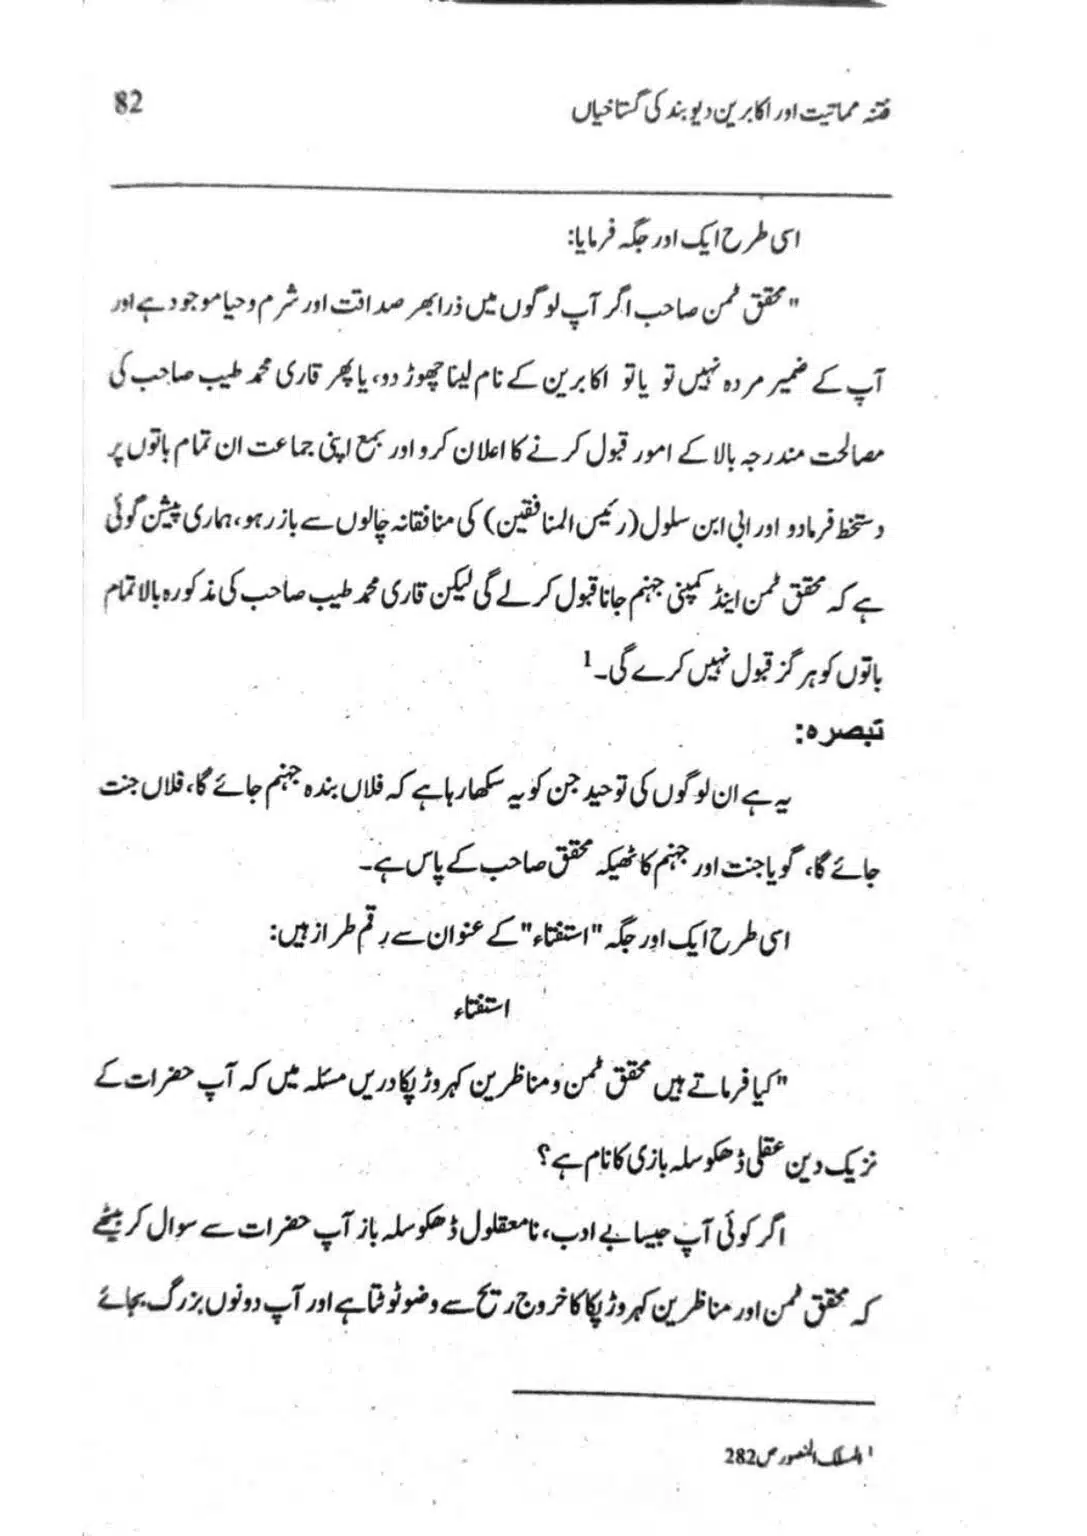 فتنہ مماتیت اور اکابرین دیوبند کی گستاخیاں 82
اسی طرح ایک اور جگہ فرمایا:
"محقق ثمن صاحب اگر آپ لوگوں میں ذرا بھر صداقت اور شرم و حیا موجود ہے اور
آپ کے ضمیر مردہ نہیں تو یا تو اکابرین کے نام لینا چھوڑ دو، یا پھر قاری محمد طیب صاحب کی
مصالحت مندرجہ بالا کے امور قبول کرنے کا اعلان کرو اور بمع اپنی جماعت ان تمام باتوں پر
دستخط فرمادو اور ابی ابن سلول (رئیس المنافقین) کی منافقانہ چالوں سے باز رہو، ہماری پیشن گوئی
ہے کہ محقق ثمن اینڈ کمپنی جہنم جانا قبول کرلے گی لیکن قاری محمد طیب صاحب کی مذکورہ بالا تمام
باتوں کو ہرگز قبول نہیں کرے گی۔1
تبصرہ:
یہ ہے ان لوگوں کی توحید جن کو یہ سکھا رہا ہے کہ فلاں بندہ جہنم جائے گا، فلاں جنت
جائے گا، گویا جنت اور جہنم کا ٹھیکہ محقق صاحب کے پاس ہے۔
اسی طرح ایک اور جگہ "استفتاء" کے عنوان سے رقم طراز ہیں:
استفتاء
"کیا فرماتے ہیں محقق ثمن و مناظرین کہروڑ پکا دریں مسئلہ میں کہ آپ حضرات کے
نزیک دین عقلی ڈھکوسلہ بازی کا نام ہے؟
اگر کوئی آپ جیسا بے ادب، نامعقلول ڈھکوسلہ باز آپ حضرات سے سوال کر بیٹھے
کہ محقق ثمن اور مناظرین کہروڑ پکا کا خروج ریح سے وضو ٹوٹتا ہے اور آپ دونوں بزرگ بجائے
1 المسلک المنصور ص282